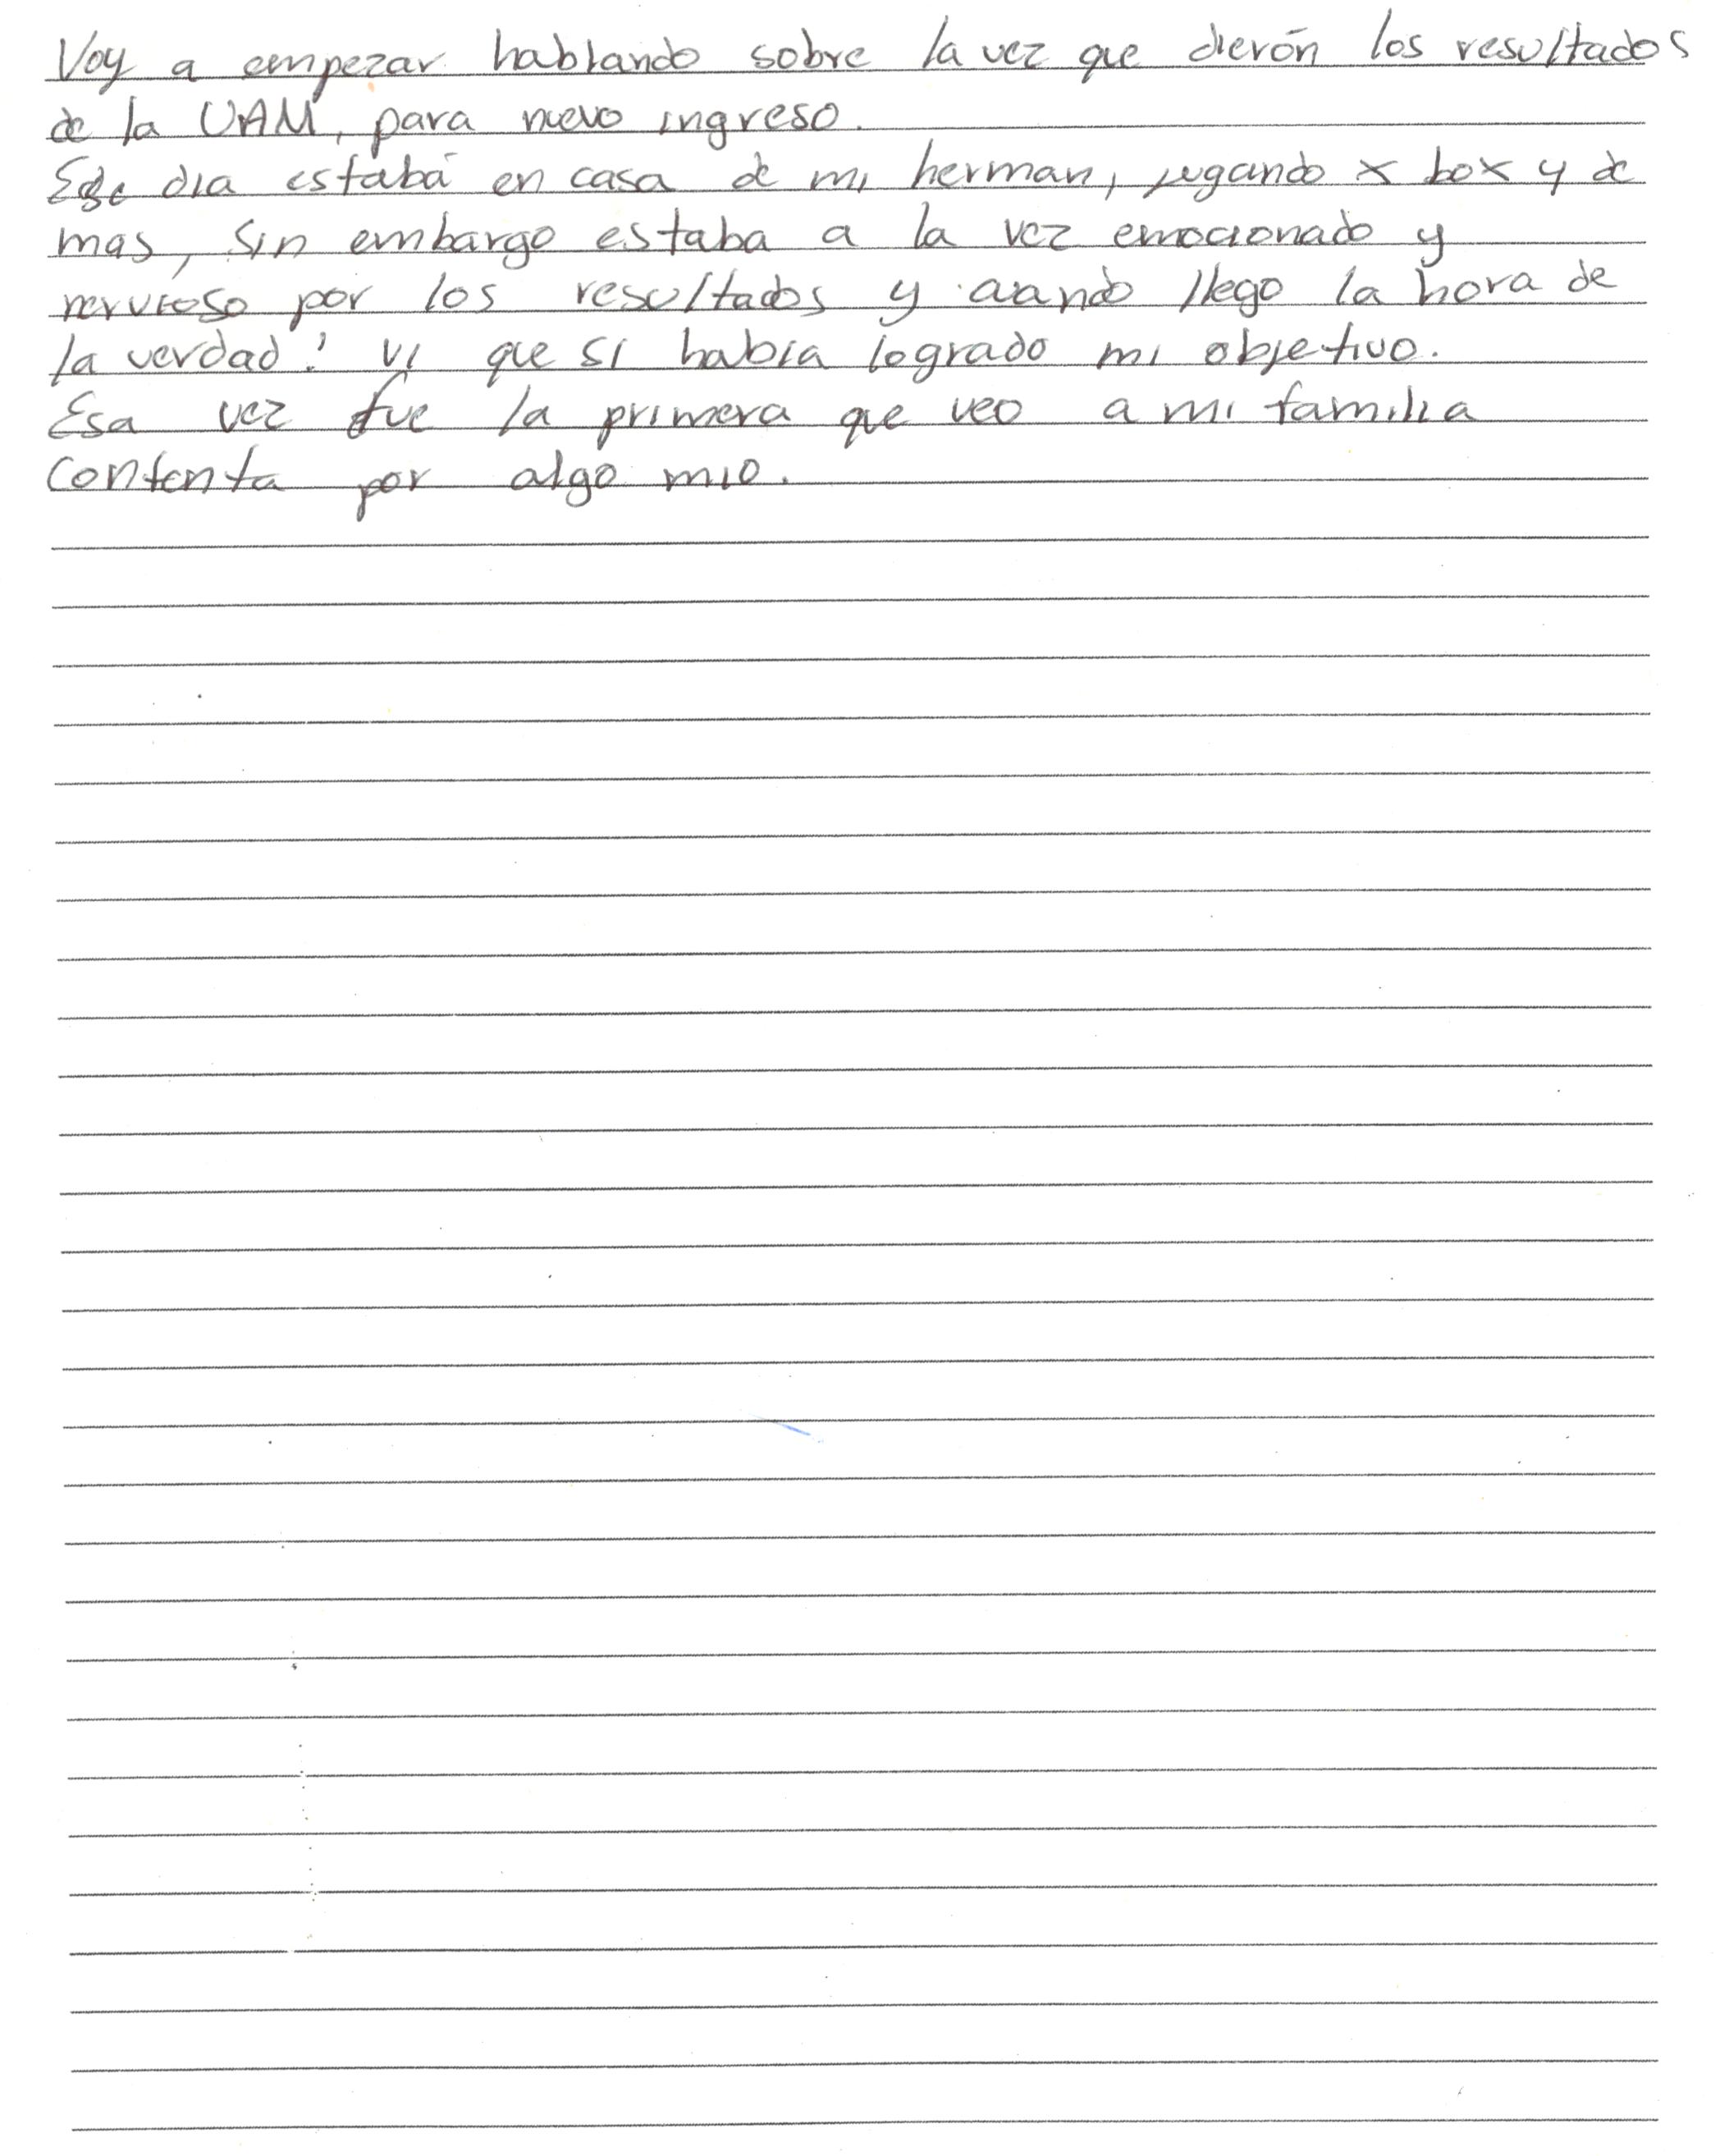 Voy a empezar hablando sobre la vez que dierón los resultados
de la UAM, para nuevo ingreso.
Ese dia estabá en casa de mi herman, jugando x box y de
mas, sin embargo estaba a la vez emocionado y
nervioso por los resultados y cuando llego la hora de
la verdad! vi que si había logrado mi objetivo.
Esa vez fue la primera que veo a mi familia
contenta por algo mio.